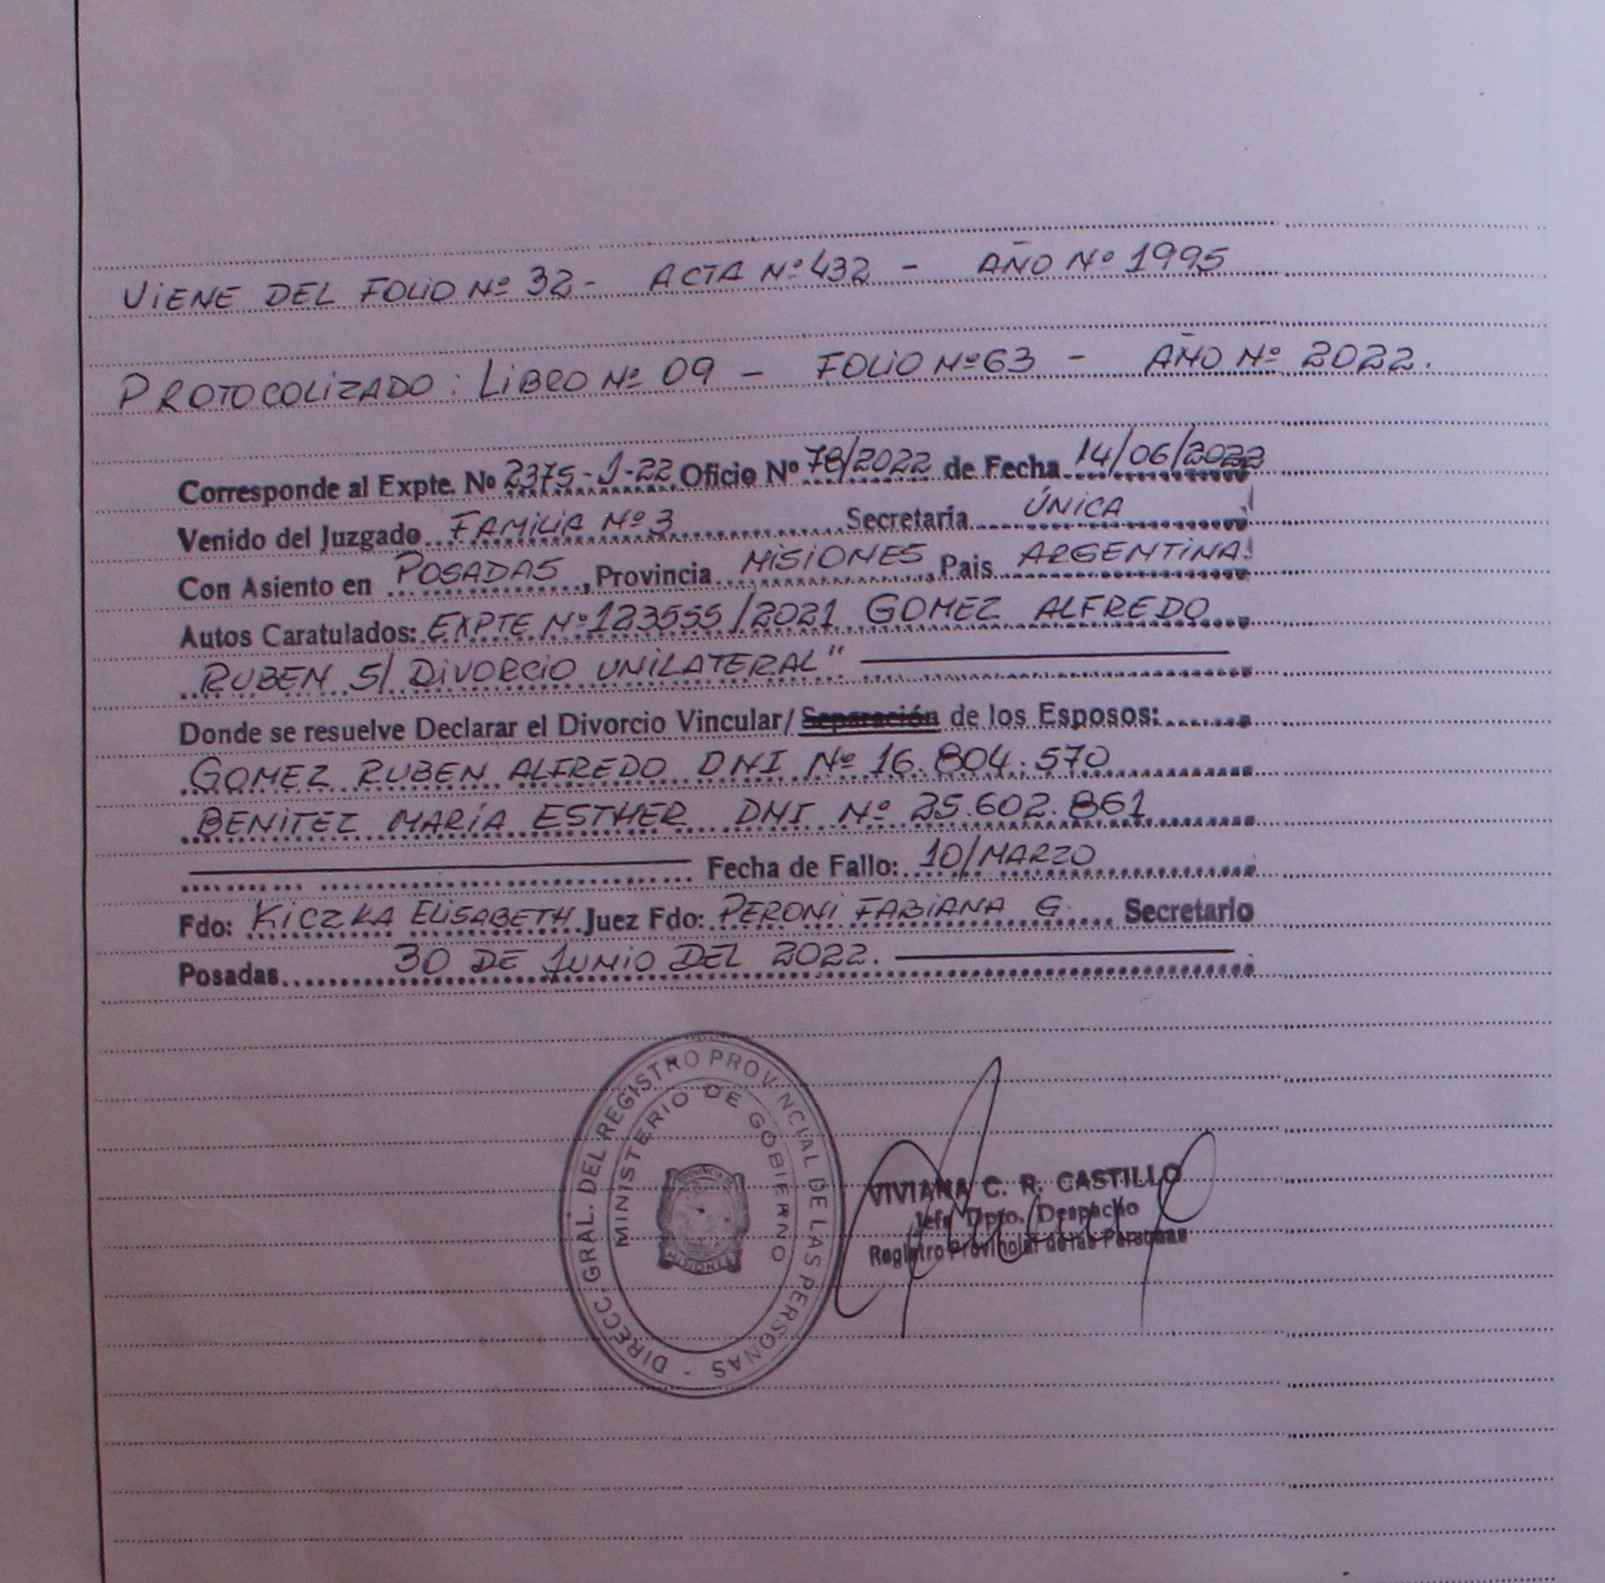 VIENE DEL FOLIO Nº 32 - ACTA Nº 432 - AÑO Nº 1995
PROTOCOLIZADO: LIBRO Nº 09 - FOLIO Nº 63 - AÑO Nº 2022.
Corresponde al Expte. Nº 2375-J-22 Oficio Nº 78/2022 de Fecha 14/06/2022
Venido del Juzgado FAMILIA Nº 3 Secretaría ÚNICA
Con Asiento en POSADAS, Provincia MISIONES, Pais ARGENTINA
Autos Caratulados: EXPTE Nº 123555/2021 GOMEZ ALFREDO
RUBEN S/ DIVORCIO UNILATERAL"
Donde se resuelve Declarar el Divorcio Vincular/ Separación de los Esposos:
GOMEZ RUBEN ALFREDO DNI Nº 16.804.570
BENITEZ MARÍA ESTHER DNI Nº 25.602.861
Fecha de Fallo: 10/MARZO
Fdo: KICZKA ELISABETH Juez Fdo: PERONI FABIANA G. Secretario
Posadas 30 DE JUNIO DEL 2022.
DIRECC. GRAL. DEL REGISTRO PROVINCIAL DE LAS PERSONAS -
MINISTERIO DE GOBIERNO
PROVINCIA DE
MISIONES
VIVIANA C. R. CASTILLO
Jefe Dpto. Despacho
Registro Provincial de las Personas